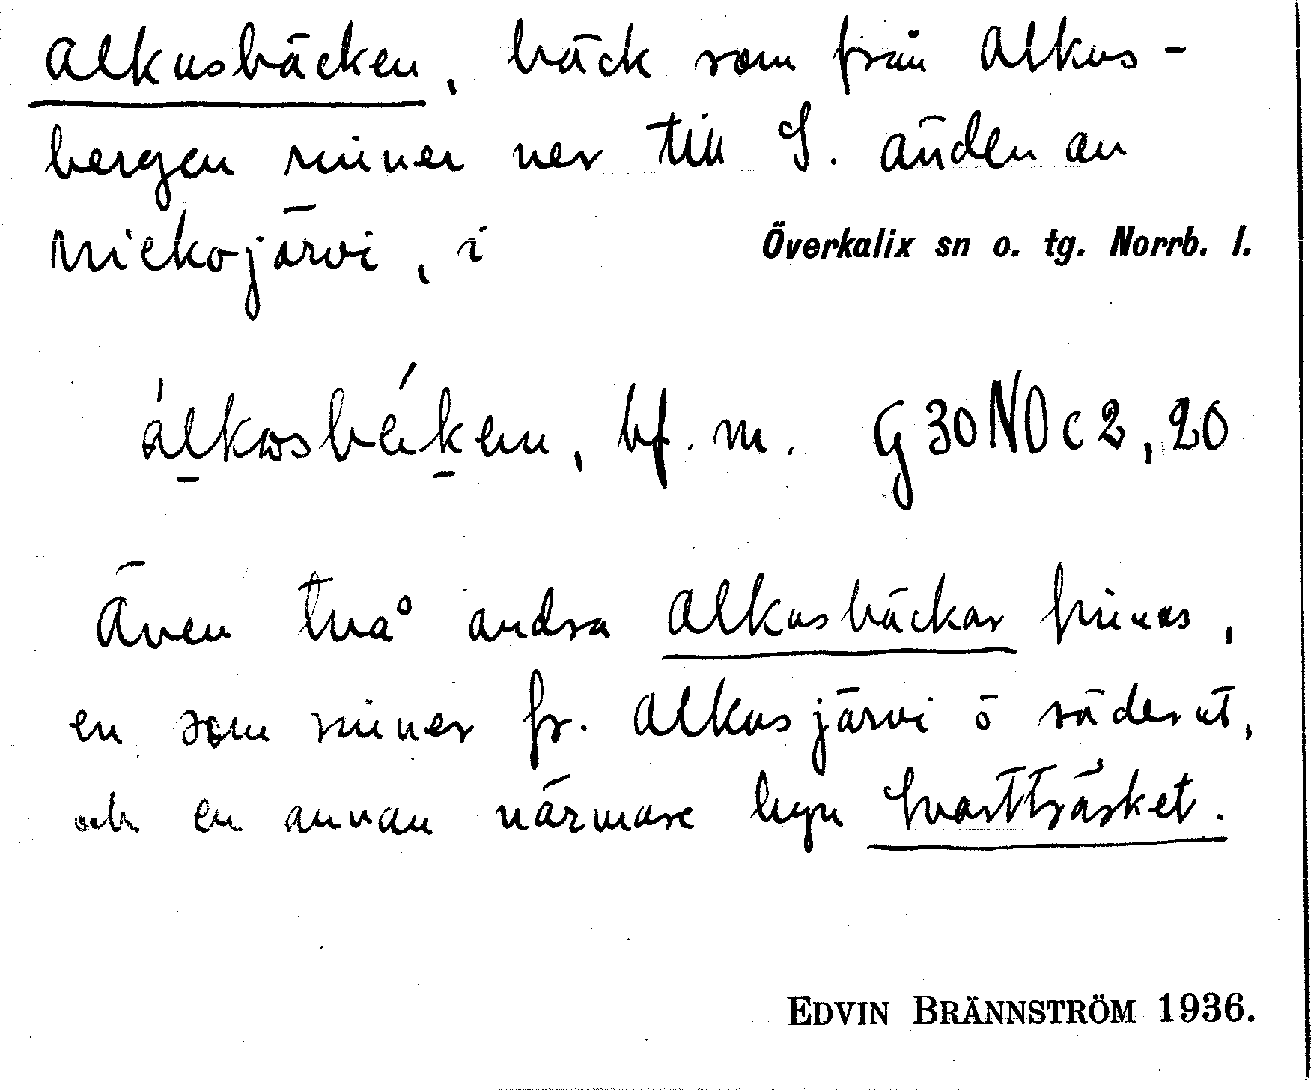 Alkusbäcken, bäck som från Alkus-
bergen rinner ner till S. änden av
Miekojärvi, i Överkalix sn o. tg. Norrb. l.
álkosbéken, bf. m. G30NOc2,20
Även två andra Alkusbäckar finnas,
en som rinner fr. Alkusjärvi ö söderut,
och en annan närmare byn Svartträsket.
EDVIN BRÄNNSTRÖM 1936.